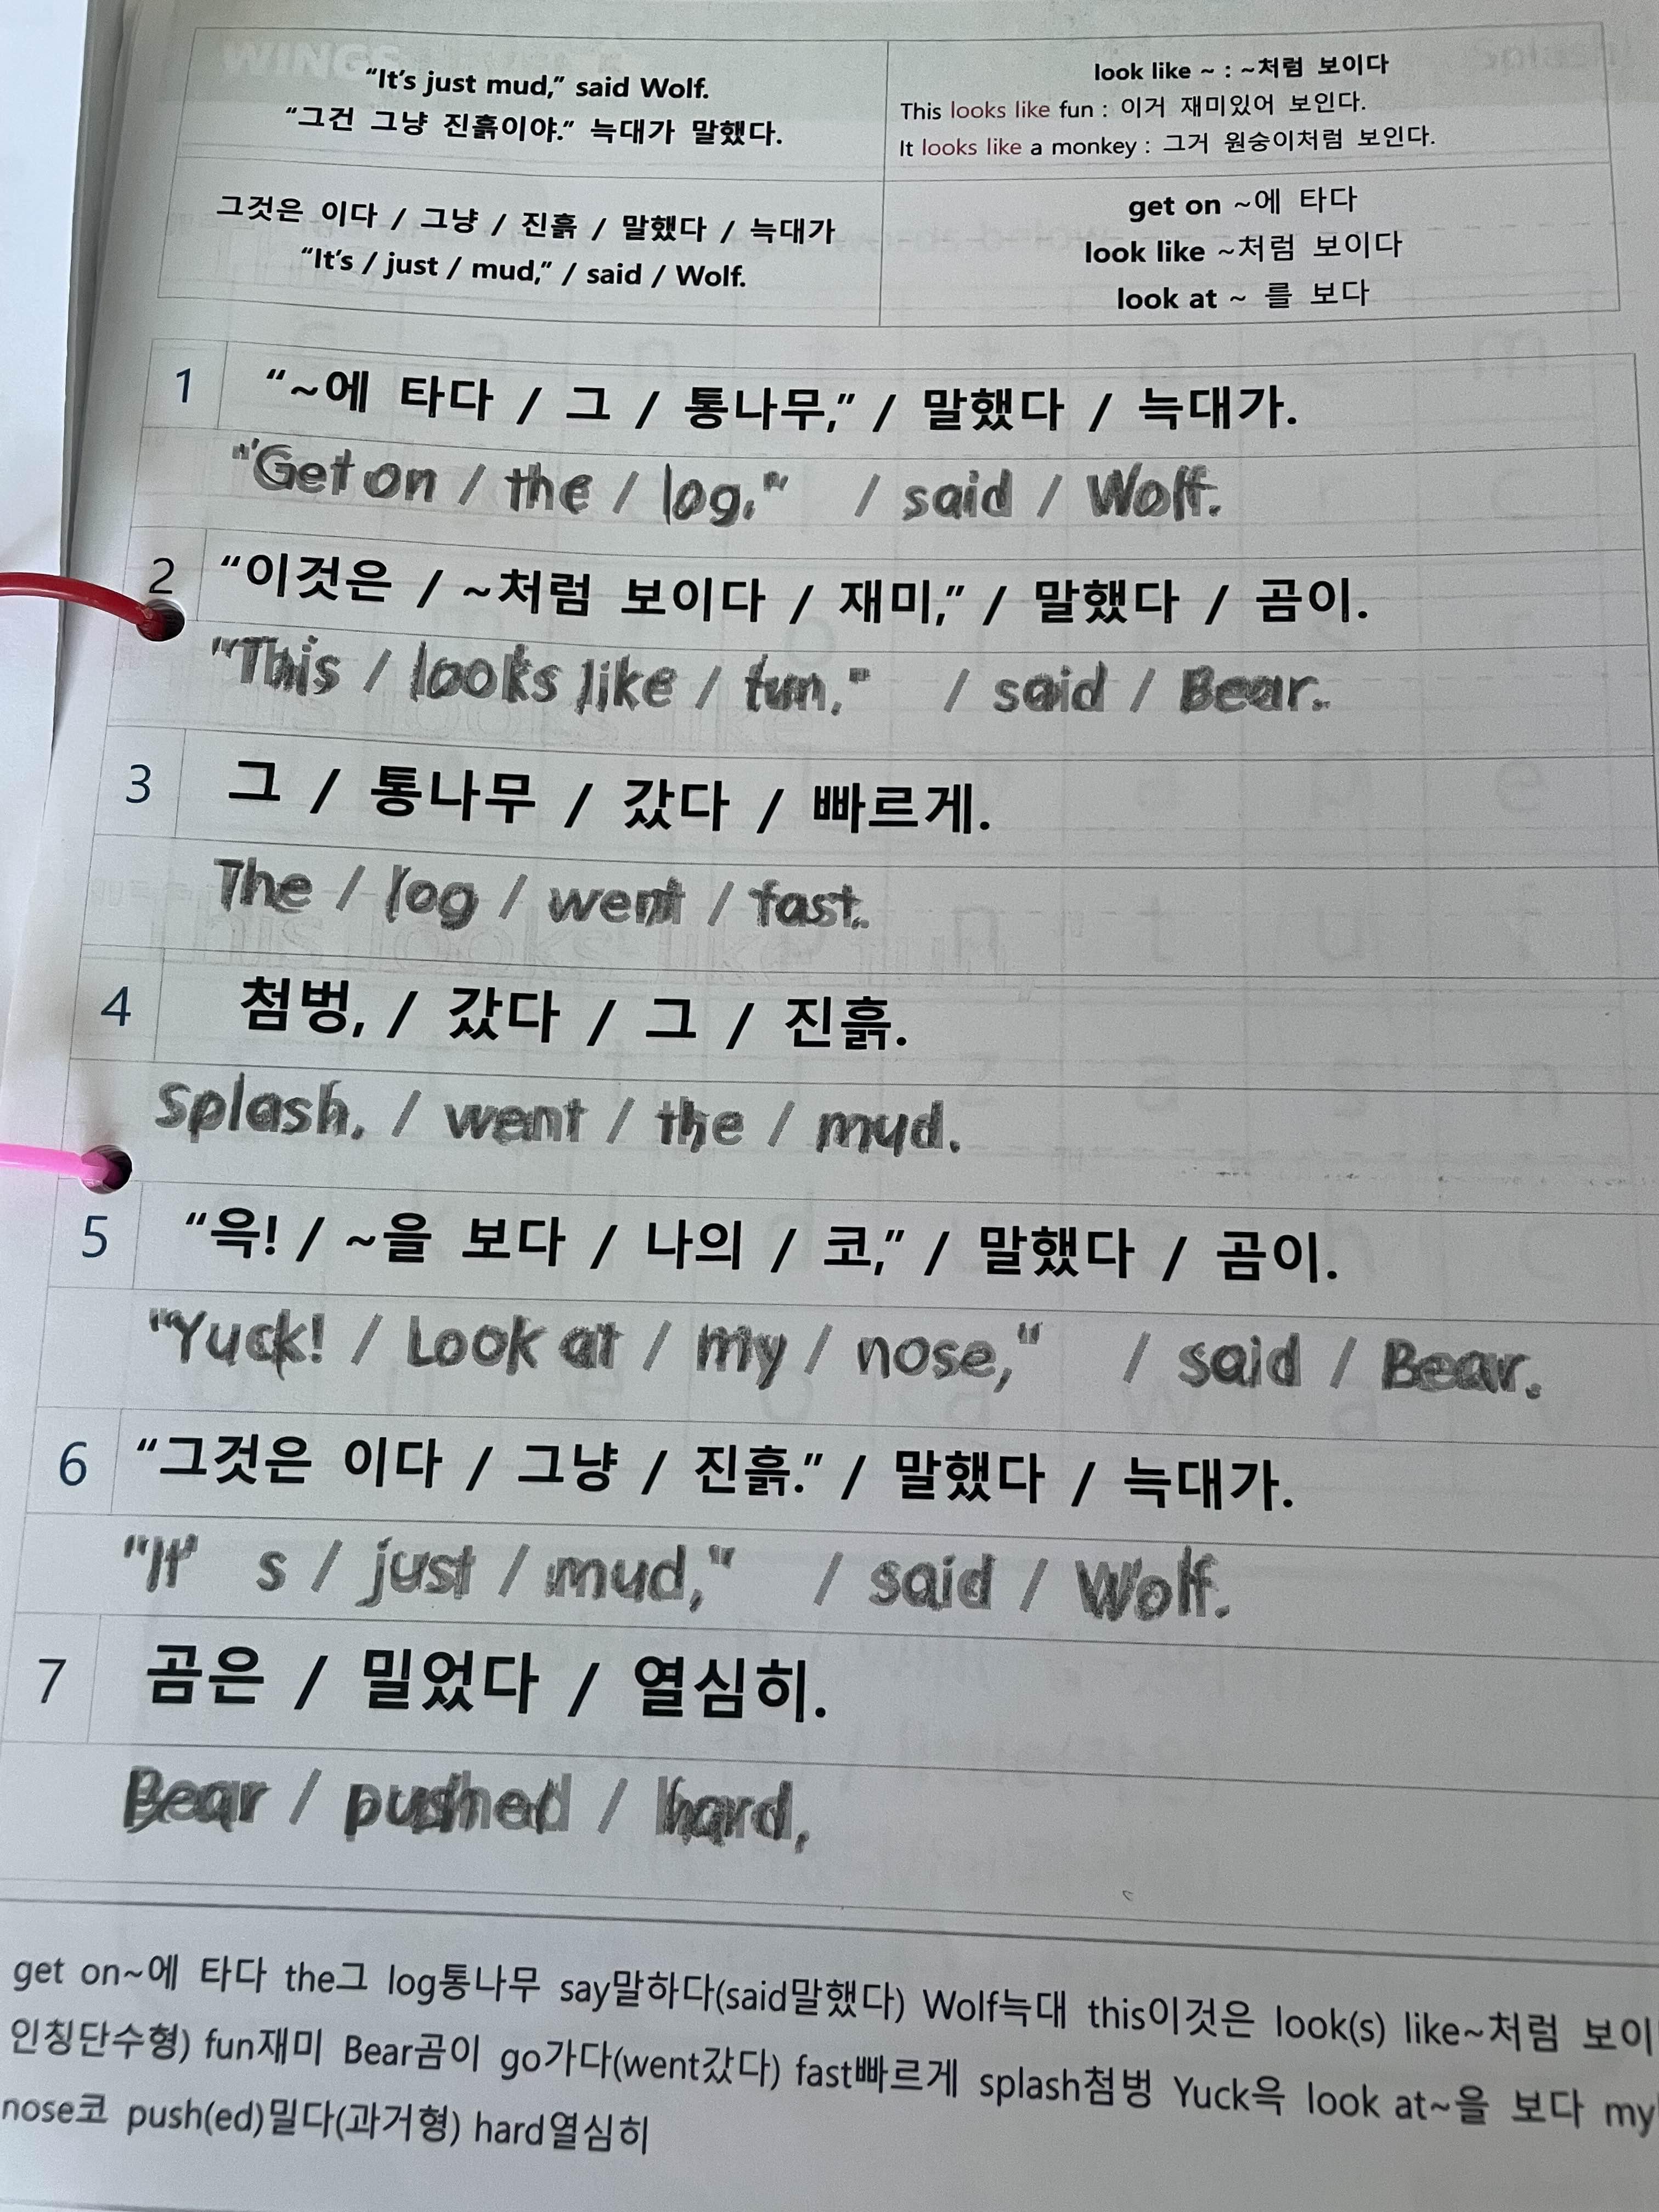 "It's just mud," said Wolf.
"그건 그냥 진흙이야." 늑대가 말했다.
look like ~ : ~처럼 보이다
This looks like fun : 이거 재미있어 보인다.
It looks like a monkey : 그거 원숭이처럼 보인다.
그것은 이다 / 그냥 / 진흙 / 말했다 / 늑대가
"It's / just / mud," / said / Wolf.
get on ~에 타다
look like ~처럼 보이다
look at ~ 를 보다
1 "~에 타다 / 그 / 통나무," / 말했다 / 늑대가.
"Get on / the / log," / said / Wolf.
2 "이것은 / ~처럼 보이다 / 재미," / 말했다 / 곰이.
"This / looks like / fun," / said / Bear.
3 그 / 통나무 / 갔다 / 빠르게.
The / log / went / fast.
4 첨벙, / 갔다 / 그 / 진흙.
Splash, / went / the / mud.
5 "윽! / ~을 보다 / 나의 / 코," / 말했다 / 곰이.
"Yuck! / Look at / my / nose," / said / Bear.
6 "그것은 이다 / 그냥 / 진흙." / 말했다 / 늑대가.
"It' s / just / mud," / said / Wolf.
7 곰은 / 밀었다 / 열심히.
Bear / pushed / hard,
get on~에 타다 the그 log통나무 say말하다(said말했다) Wolf늑대 this이것은 look(s) like~처럼 보이
인칭단수형) fun재미 Bear곰이 go가다(went갔다) fast빠르게 splash첨벙 Yuck윽 look at~을 보다 my
nose코 push(ed)밀다(과거형) hard열심히